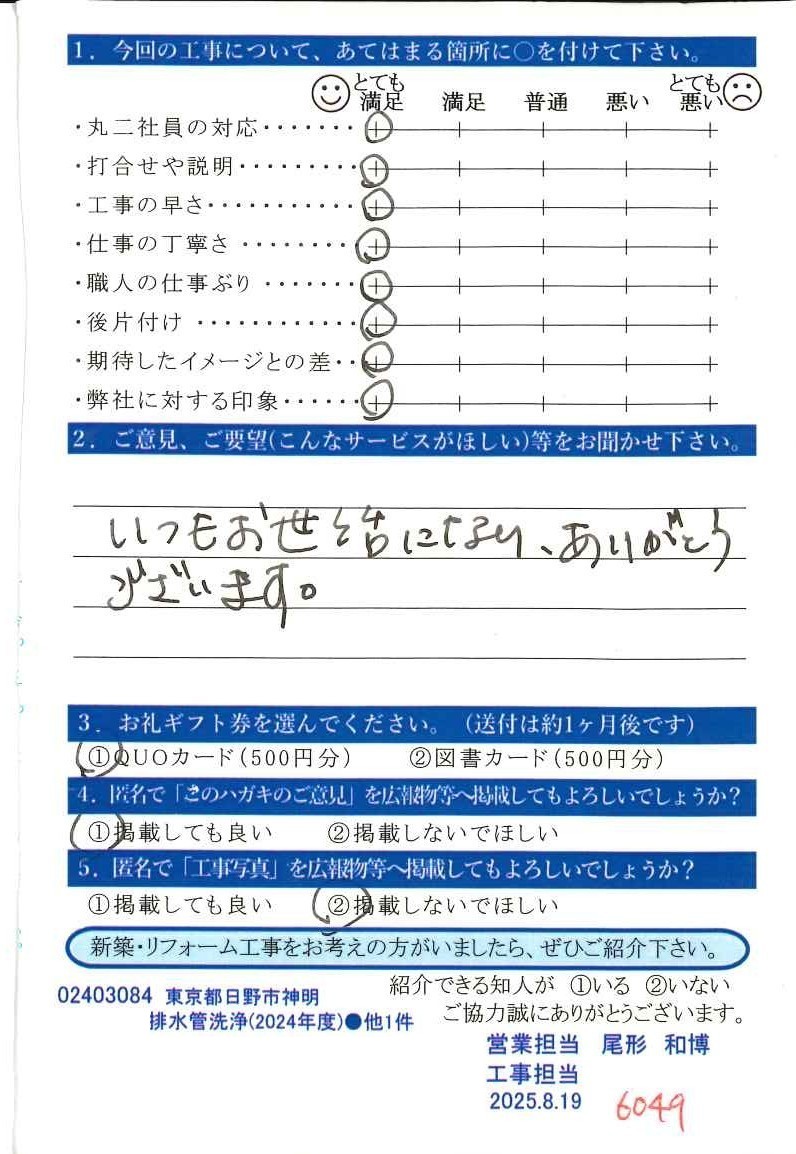 1．今回の工事について、あてはまる箇所に○を付けて下さい。
とても満足 満足 普通 悪い とても悪い
・丸二社員の対応・・・・・・・
・打合せや説明・・・・・・・・・
・工事の早さ・・・・・・・・・・・
・仕事の丁寧さ・・・・・・・・
・職人の仕事ぶり・・・・・・・
・後片付け・・・・・・・・・・・・
・期待したイメージとの差・・
・弊社に対する印象・・・・・・
2．ご意見、ご要望(こんなサービスがほしい)等をお聞かせ下さい。
いつもお世話になり、ありがとう
ございます。
3．お礼ギフト券を選んでください。（送付は約1ヶ月後です）
①QUOカード（500円分） ②図書カード（500円分）
4．匿名で「このハガキのご意見」を広報物等へ掲載してもよろしいでしょうか？
①掲載しても良い ②掲載しないでほしい
5．匿名で「工事写真」を広報物等へ掲載してもよろしいでしょうか？
①掲載しても良い ②掲載しないでほしい
新築・リフォーム工事をお考えの方がいましたら、ぜひご紹介下さい。
紹介できる知人が ①いる ②いない
02403084 東京都日野市神明
ご協力誠にありがとうございます。
排水管洗浄(2024年度)●他1件
営業担当 尾形 和博
工事担当
2025.8.19
6049